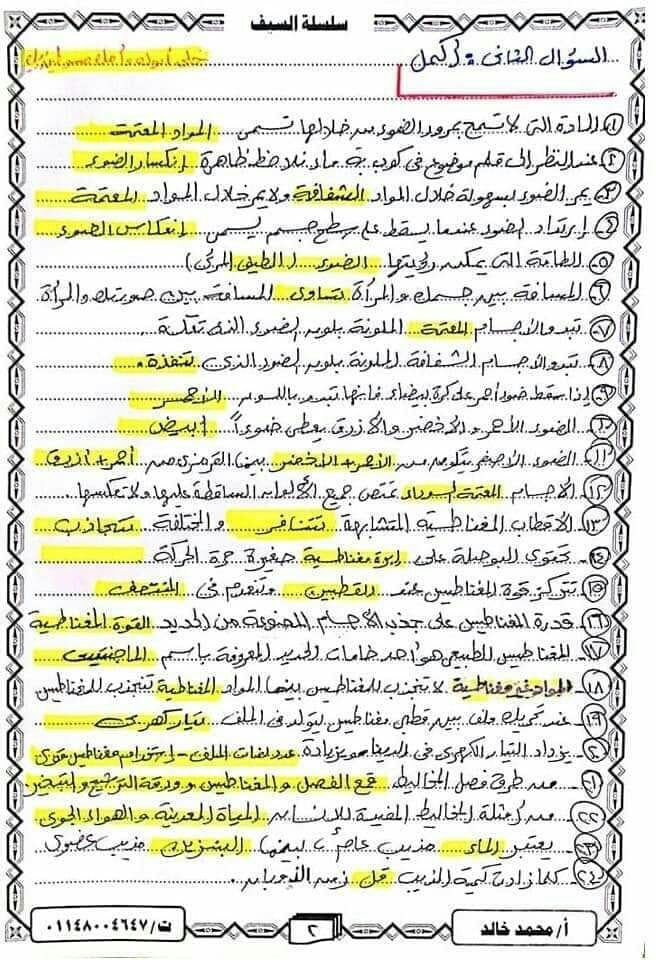 سلسلة السيف
السؤال الثانى : أكمل
١- المادة التى لا تسمح بمرور الضوء من خلالها تسمى المواد المعتمة
٢- عند النظر الى قلم موضوع فى كوب به ماء نلاحظ ظاهرة إنكسار الضوء
٣- يمر الضوء بسهولة خلال المواد الشفافة ولا يمر خلال المواد المعتمة
٤- إرتداد الضوء عندما يسقط على سطح جسم يسمى إنعكاس الضوء
٥- الطاقة التى يمكن رؤيتها الضوء (الطيف المرئى)
٦- المسافة بين جسمك والمرآة تساوى المسافة بين صورتك والمرآة
٧- تبدو الأجسام المعتمة الملونة بلون الضوء الذى تعكسه
٨- تبدو الأجسام الشفافة الملونة بلون الضوء الذى تنفذه
٩- إذا سقط ضوء أحمر على كرة بيضاء فإنها تبدو باللون الأحمر
١٠- الضوء الأحمر والأخضر والأزرق يعطى ضوءاً أبيض
١١- الضوء الأصفر يتكون من الأحمر + الأخضر بينما القرمزى من أحمر + أزرق
١٢- الأجسام المعتمة السوداء تمتص جميع الألوان الساقطة عليها ولا تعكسها
١٣- الأقطاب المغناطيسية المتشابهة تتنافر والمختلفة تتجاذب
١٤- تحتوى البوصلة على إبرة مغناطيسية صغيرة حرة الحركة
١٥- تتركز قوة المغناطيس عند القطبين وتنعدم فى المنتصف
١٦- قدرة المغناطيس على جذب الأجسام المصنوعة من الحديد القوة المغناطيسية
١٧- المغناطيس الطبيعى هو أحد خامات الحديد المعروفة باسم الماجنتيت
١٨- المواد غير مغناطيسية لا تنجذب للمغناطيس بينما المواد المغناطيسية تنجذب للمغناطيس
١٩- عند تحريك ملف بين قطبى مغناطيس يتولد فى الملف تيار كهربى
٢٠- يزداد التيار الكهربى فى الدينامو بزيادة عدد لفات الملف - إستخدام مغناطيس قوى
٢١- من طرق فصل المخاليط قمع الفصل والمغناطيس وورقة الترشيح والتبخير
٢٢- من أمثلة المخاليط المفيدة للإنسان المياة المعدنية والهواء الجوى
٢٣- يعتبر الماء مذيب عام بينما البنزين مذيب عضوى
٢٤- كلما زادت كمية المذيب قل زمن الذوبان
أ/ محمد خالد
٢
ت/ ٠١١٤٨٠٠٤٦٤٧